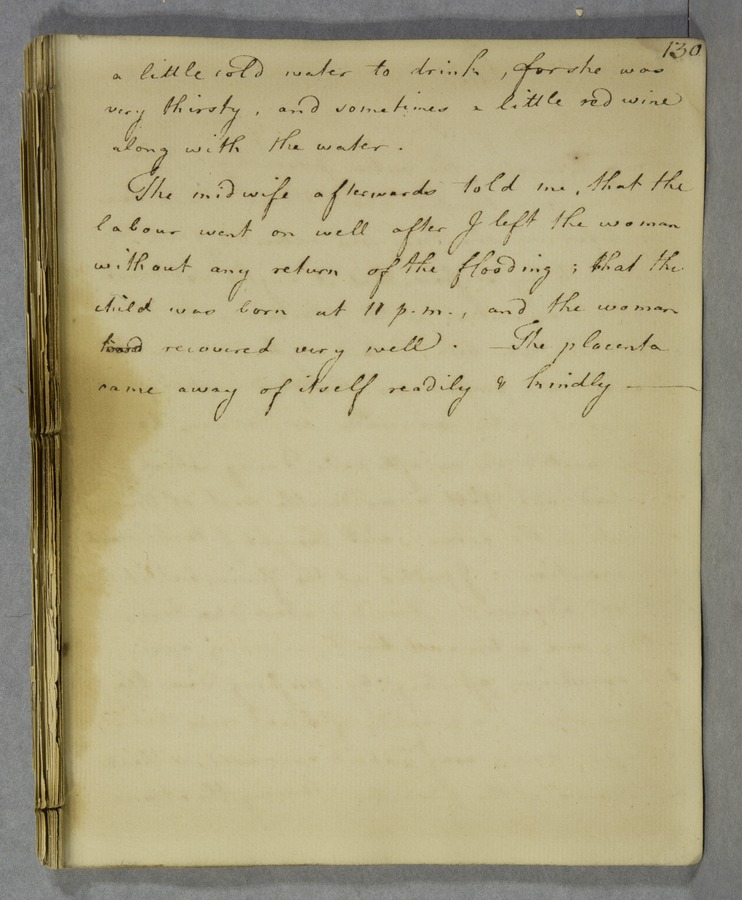 130
a little cold water to drink, for she was
very thirsty, and sometimes a little red wine
along with the water.
The midwife afterwards told me, that the
labour went on well after I left the woman
without any return of the flooding; that the
child was born at 11 p.m., and the woman
recovered very well. — The placenta
came away of itself readily & kindly —